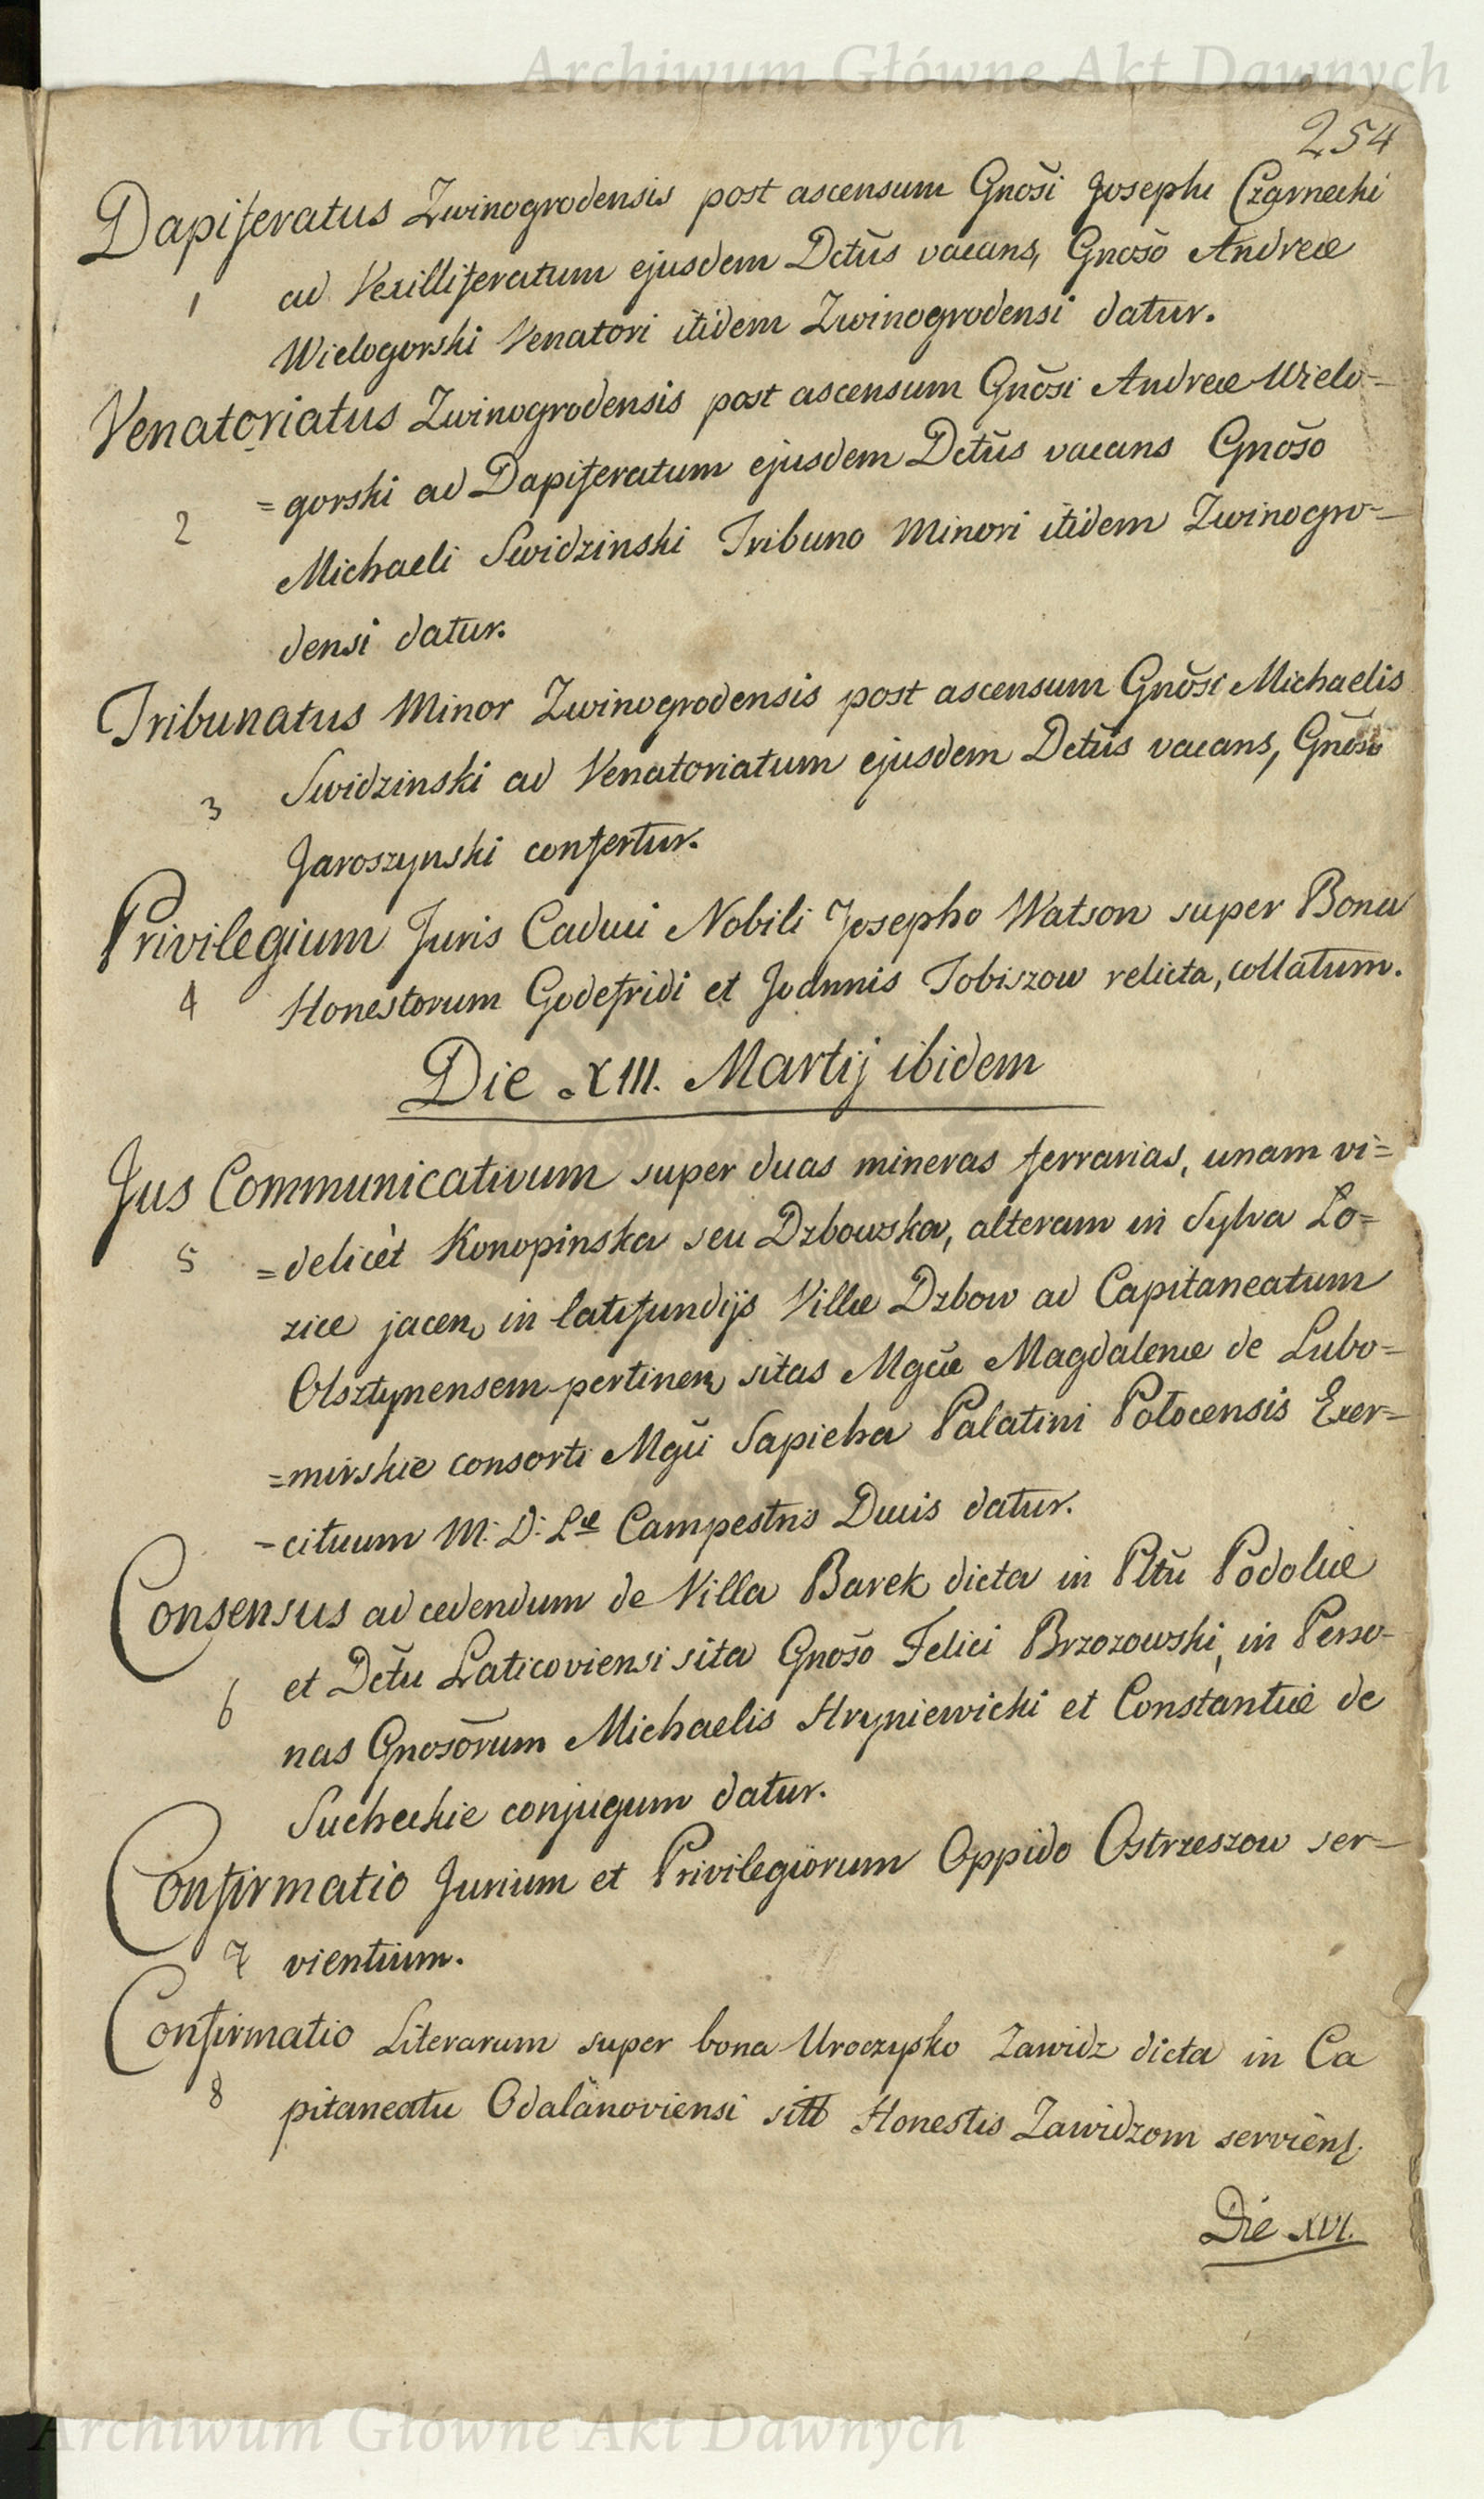 Archiwum Główne Akt Dawnych
254
Dapiferatus Zwinogrodensis post ascensum Gnõsi Josephi Czarnecki
1 ad Vexilliferatum ejusdem Dctũs vacans, Gnõso Andreæ
Wielogorski Venatori itidem Zwinogrodensi datur.
Venatoriatus Zwinogrodensis post ascensum Gnõsi Andreæ Wielo=
2 =gorski ad Dapiferatum ejusdem Dctũs vacans Gnõso
Michaeli Swidzinski Tribuno Minori itidem Zwinogro=
densi datur.
Tribunatus Minor Zwinogrodensis post ascensum Gnõsi Michaelis
3 Swidzinski ad Venatoriatum ejusdem Dctũs vacans, Gnõso
Jaroszynski confertur.
Privilegium Juris Caduci Nobili Josepho Watson super Bona
4 Honestorum Godefridi et Joannis Tobiszow relicta, collatum.
Die XIII. Martij ibidem
Jus Communicativum super duas mineras ferrarias, unam vi=
5 =delicèt Konopinska seu Dzbowska, alteram in Sylva Lo=
zice jacen, in latifundijs Villæ Dzbow ad Capitaneatum
Olsztynensem pertinen, sitas Mgcæ Magdalenæ de Lubo=
=mirskie consorti Mgci Sapieha Palatini Polocensis Exer=
=cituum M: D: Læ Campestris Ducis datur.
Consensus ad cedendum de Villa Barek dicta in Pltũ Podoliæ
et Dctũ Laticoviensi sita Gnõso Felici Brzozowski, in Perso-
6 nas Gnosõrum Michaelis Hryniewicki et Constantiæ de
Sucheckie conjugum datur.
Confirmatio Jurium et Privilegiorum Oppido Ostrzeszow ser=
7 vientium.
Confirmatio Literarum super bona Uroczysko Zawidz dicta in Ca
8 pitaneatu Odalanoviensi Honestis Zawidzom servien
Die XVI.
Archiwum Główne Akt Dawnych